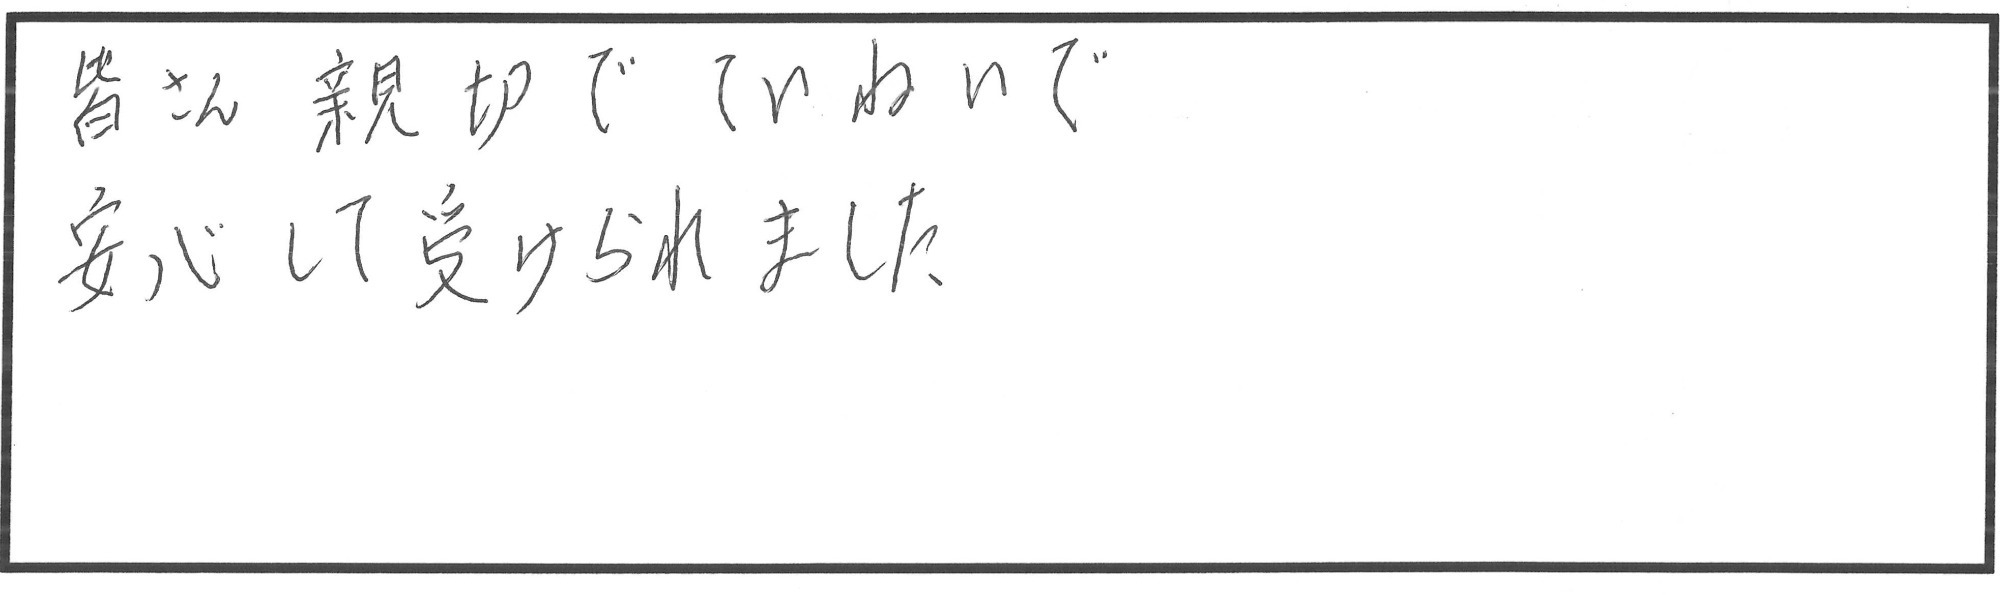 皆さん親切でていねいで
安心して受けられました